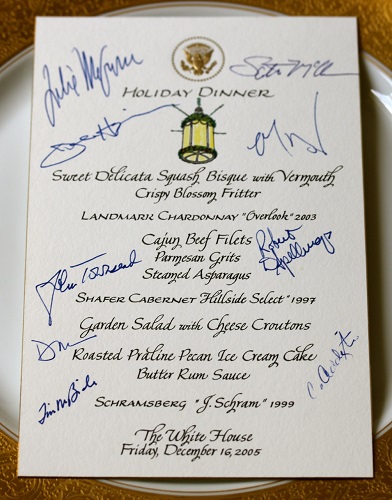 Holiday Dinner
Sweet Delicata Squash Bisque with Vermouth
Crispy Blossom Fritter
Landmark Chardonnay "Overlook" 2003
Cajun Beef Filets
Parmesan Grits
Steamed Asparagus
Shafer Cabernet "Hillside Select" 1997
John Townsend
Garden Salad with Cheese Croutons
Roasted Praline Pecan Ice Cream Cake
Butter Rum Sauce
Tim McBride
Schramsberg "J. Schram" 1999
The White House
Friday, December 16, 2005